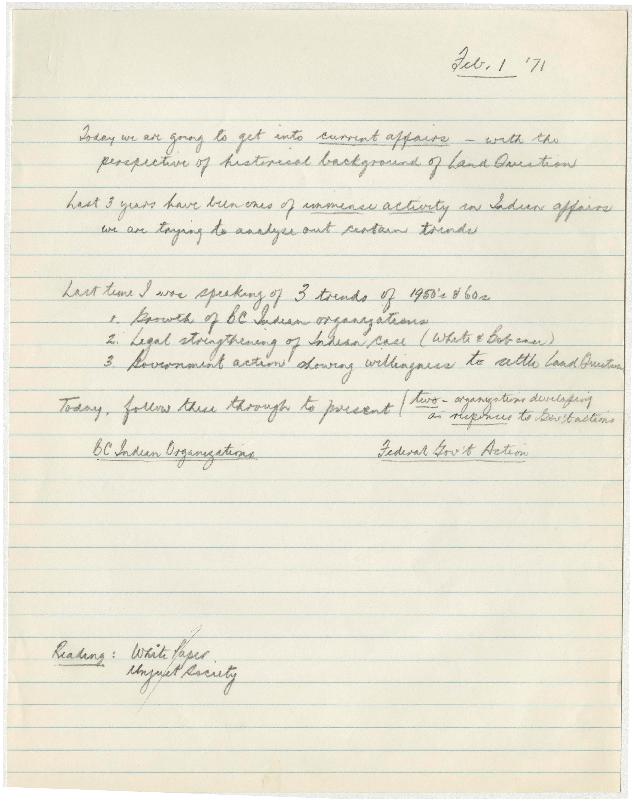 Feb. 1 '71
Today we are going to get into current affairs – with the
perspective of historical background of Land Question
Last 3 years have been ones of immense activity in Indian affairs
we are trying to analyse out certain trends
Last time I was speaking of 3 trends of 1950's & 60s
1. Growth of BC Indian organizations
2. Legal strengthening of Indian case (White & Bob case)
3. Government action showing willingness to settle Land Question
Today, follow these through to present / two – organizations developing
as responses to Gov't actions
BC Indian Organizations Federal Gov't Action
Reading: White Paper
Unjust Society